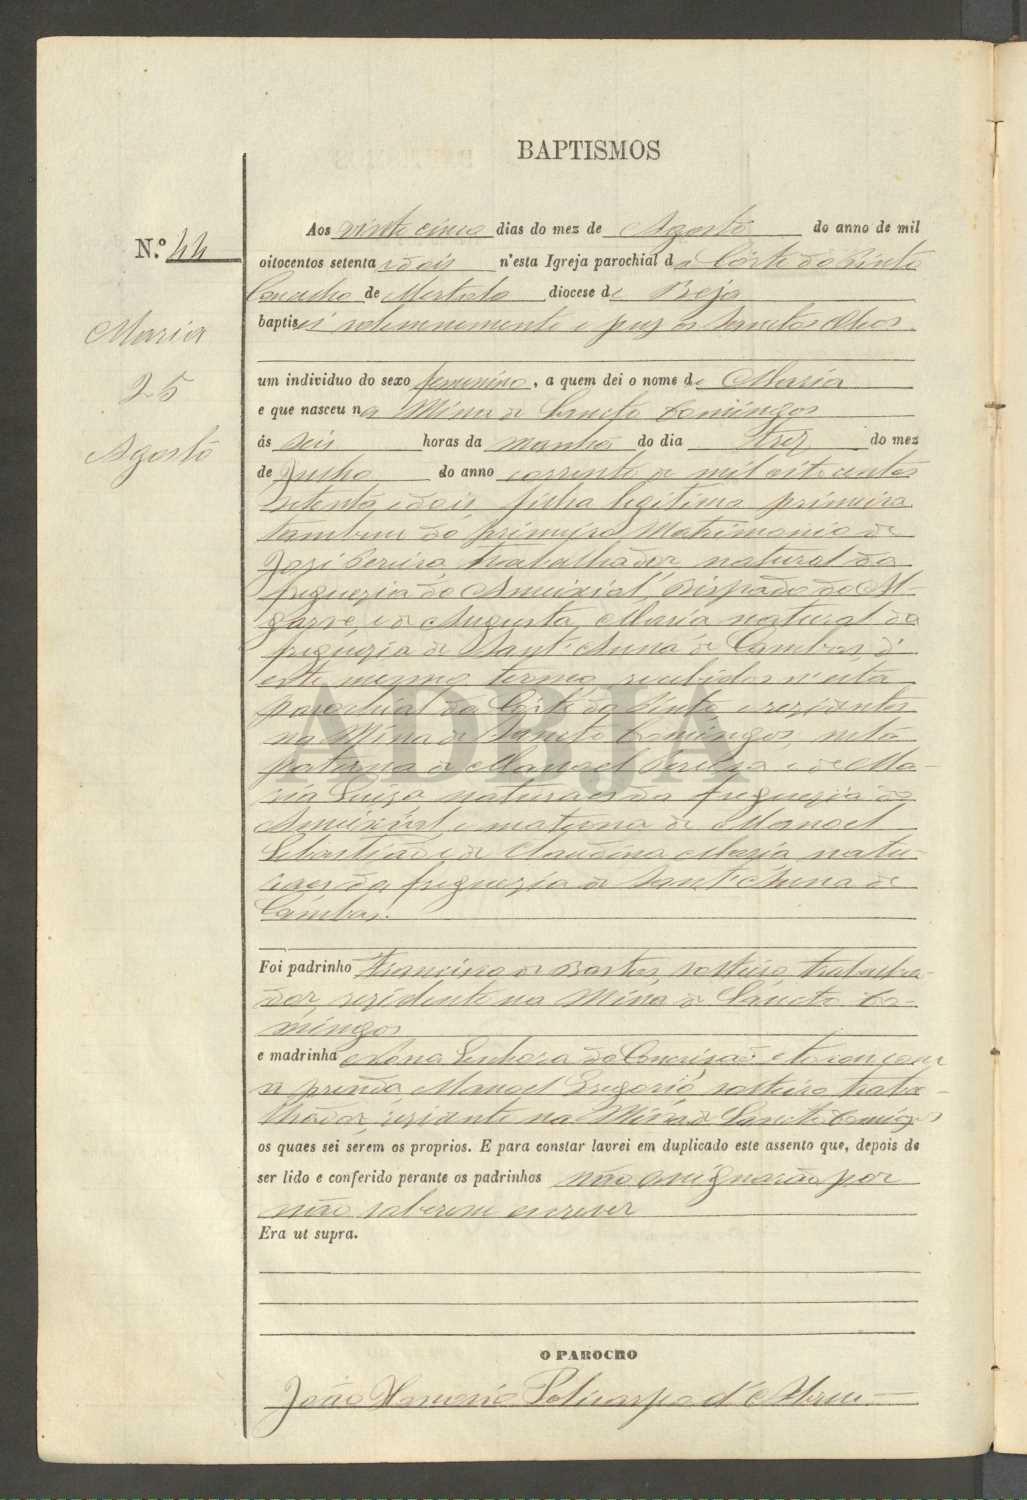 BAPTISMOS
N.º 44
Maria
25
Agosto
Aos vinte cinco dias do mez de Agosto do anno de mil
oitocentos setenta e dois n'esta Igreja parochial da Côrte do Pinto
Concelho de Mertola diocese de Beja
baptisei solemnemente e puz os Sanctos Oleos
um individuo do sexo femenino, a quem dei o nome de Maria
e que nasceu na Mina de Sancto Domingos
ás seis horas da manhã do dia trez do mez
de Julho do anno corrente de mil oito centos
setenta e dois, filha legitima primeira
tambem do primeiro Matrimonio de
José Pereira, trabalhador, natural da
freguezia do Ameixial, Bispado do Al-
garve, e de Augusta Maria natural da
freguezia de Sant'Anna de Cambas, d'
este mesmo termo, recebidos n'esta
parochial da Côrte do Pinto e rezidentes
na Mina de Sancto Domingos, neta
paterna de Manoel Pereira e de Ma-
ria Luiza naturaes da freguezia do
Ameixial e materna de Manoel
Sebastião e de Claudina Maria natu-
raes da freguezia de Sant'Anna de
Cambas.
Foi padrinho Francisco de Bastos, solteiro trabalha-
dor, rezidente na Mina de Sancto Do-
mingos
e madrinha Nossa Senhora da Conceição e tocou com
a prenda Manoel Gregorio, solteiro traba-
lhador, rezidente na Mina de Sancto Domingos
os quaes sei serem os proprios. E para constar lavrei em duplicado este assento que, depois de
ser lido e conferido perante os padrinhos não assignarão por
não saberem escrever
Era ut supra.
O PAROCHO
João Policarpo d'Abreu
ADBJA